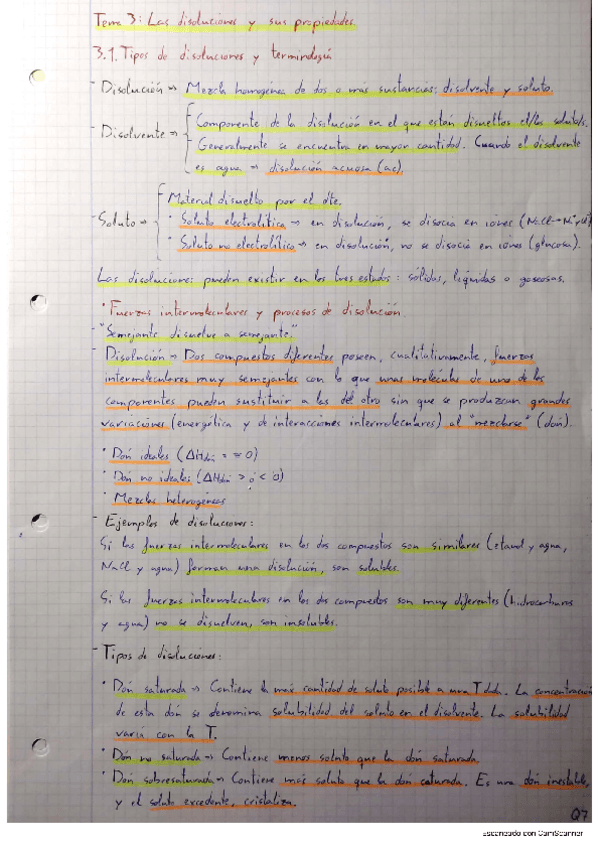 Tema 3: Las disoluciones y sus propiedades.
3.1. Tipos de disoluciones y terminología
- Disolución → Mezcla homogénea de dos o más sustancias: disolvente y soluto.
- Disolvente → Componente de la disolución en el que están disueltos el/los soluto/s.
Generalmente se encuentra en mayor cantidad. Cuando el disolvente
es agua → disolución acuosa (ac).
- Soluto → Material disuelto por el dte.
· Soluto electrolítico → en disolución, se disocia en iones
· Soluto no electrolítico → en disolución, no se disocia en iones (glucosa).
Las disoluciones pueden existir en los tres estados: sólidas, líquidas o gaseosas.
· Fuerzas intermoleculares y procesos de disolución.
- "Semejante disuelve a semejante."
- Disolución → Dos compuestos diferentes poseen, cualitativamente, fuerzas
intermoleculares muy semejantes con lo que unas moléculas de uno de los
componentes pueden sustituir a las del otro sin que se produzcan grandes
variaciones (energética y de interacciones intermoleculares) al "mezclarse" (don).
· Don ideales
· Don no ideales
· Mezclas heterogéneas
- Ejemplos de disoluciones:
Si las fuerzas intermoleculares en los dos compuestos son similares (etanol y agua,
NaCl y agua) forman una disolución, son solubles.
Si las fuerzas intermoleculares en los dos compuestos son muy diferentes (hidrocarburos
y agua) no se disuelven, son insolubles.
- Tipos de disoluciones:
· Don saturada → Contiene la máx cantidad de soluto posible a una T dada. La concentración
de esta don se denomina solubilidad del soluto en el disolvente. La solubilidad
varía con la T.
· Don no saturada → Contiene menos soluto que la don saturada.
· Don sobresaturada → Contiene más soluto que la don saturada. Es una don inestable,
y el soluto excedente, cristaliza.
Q7
Escaneado con CamScanner